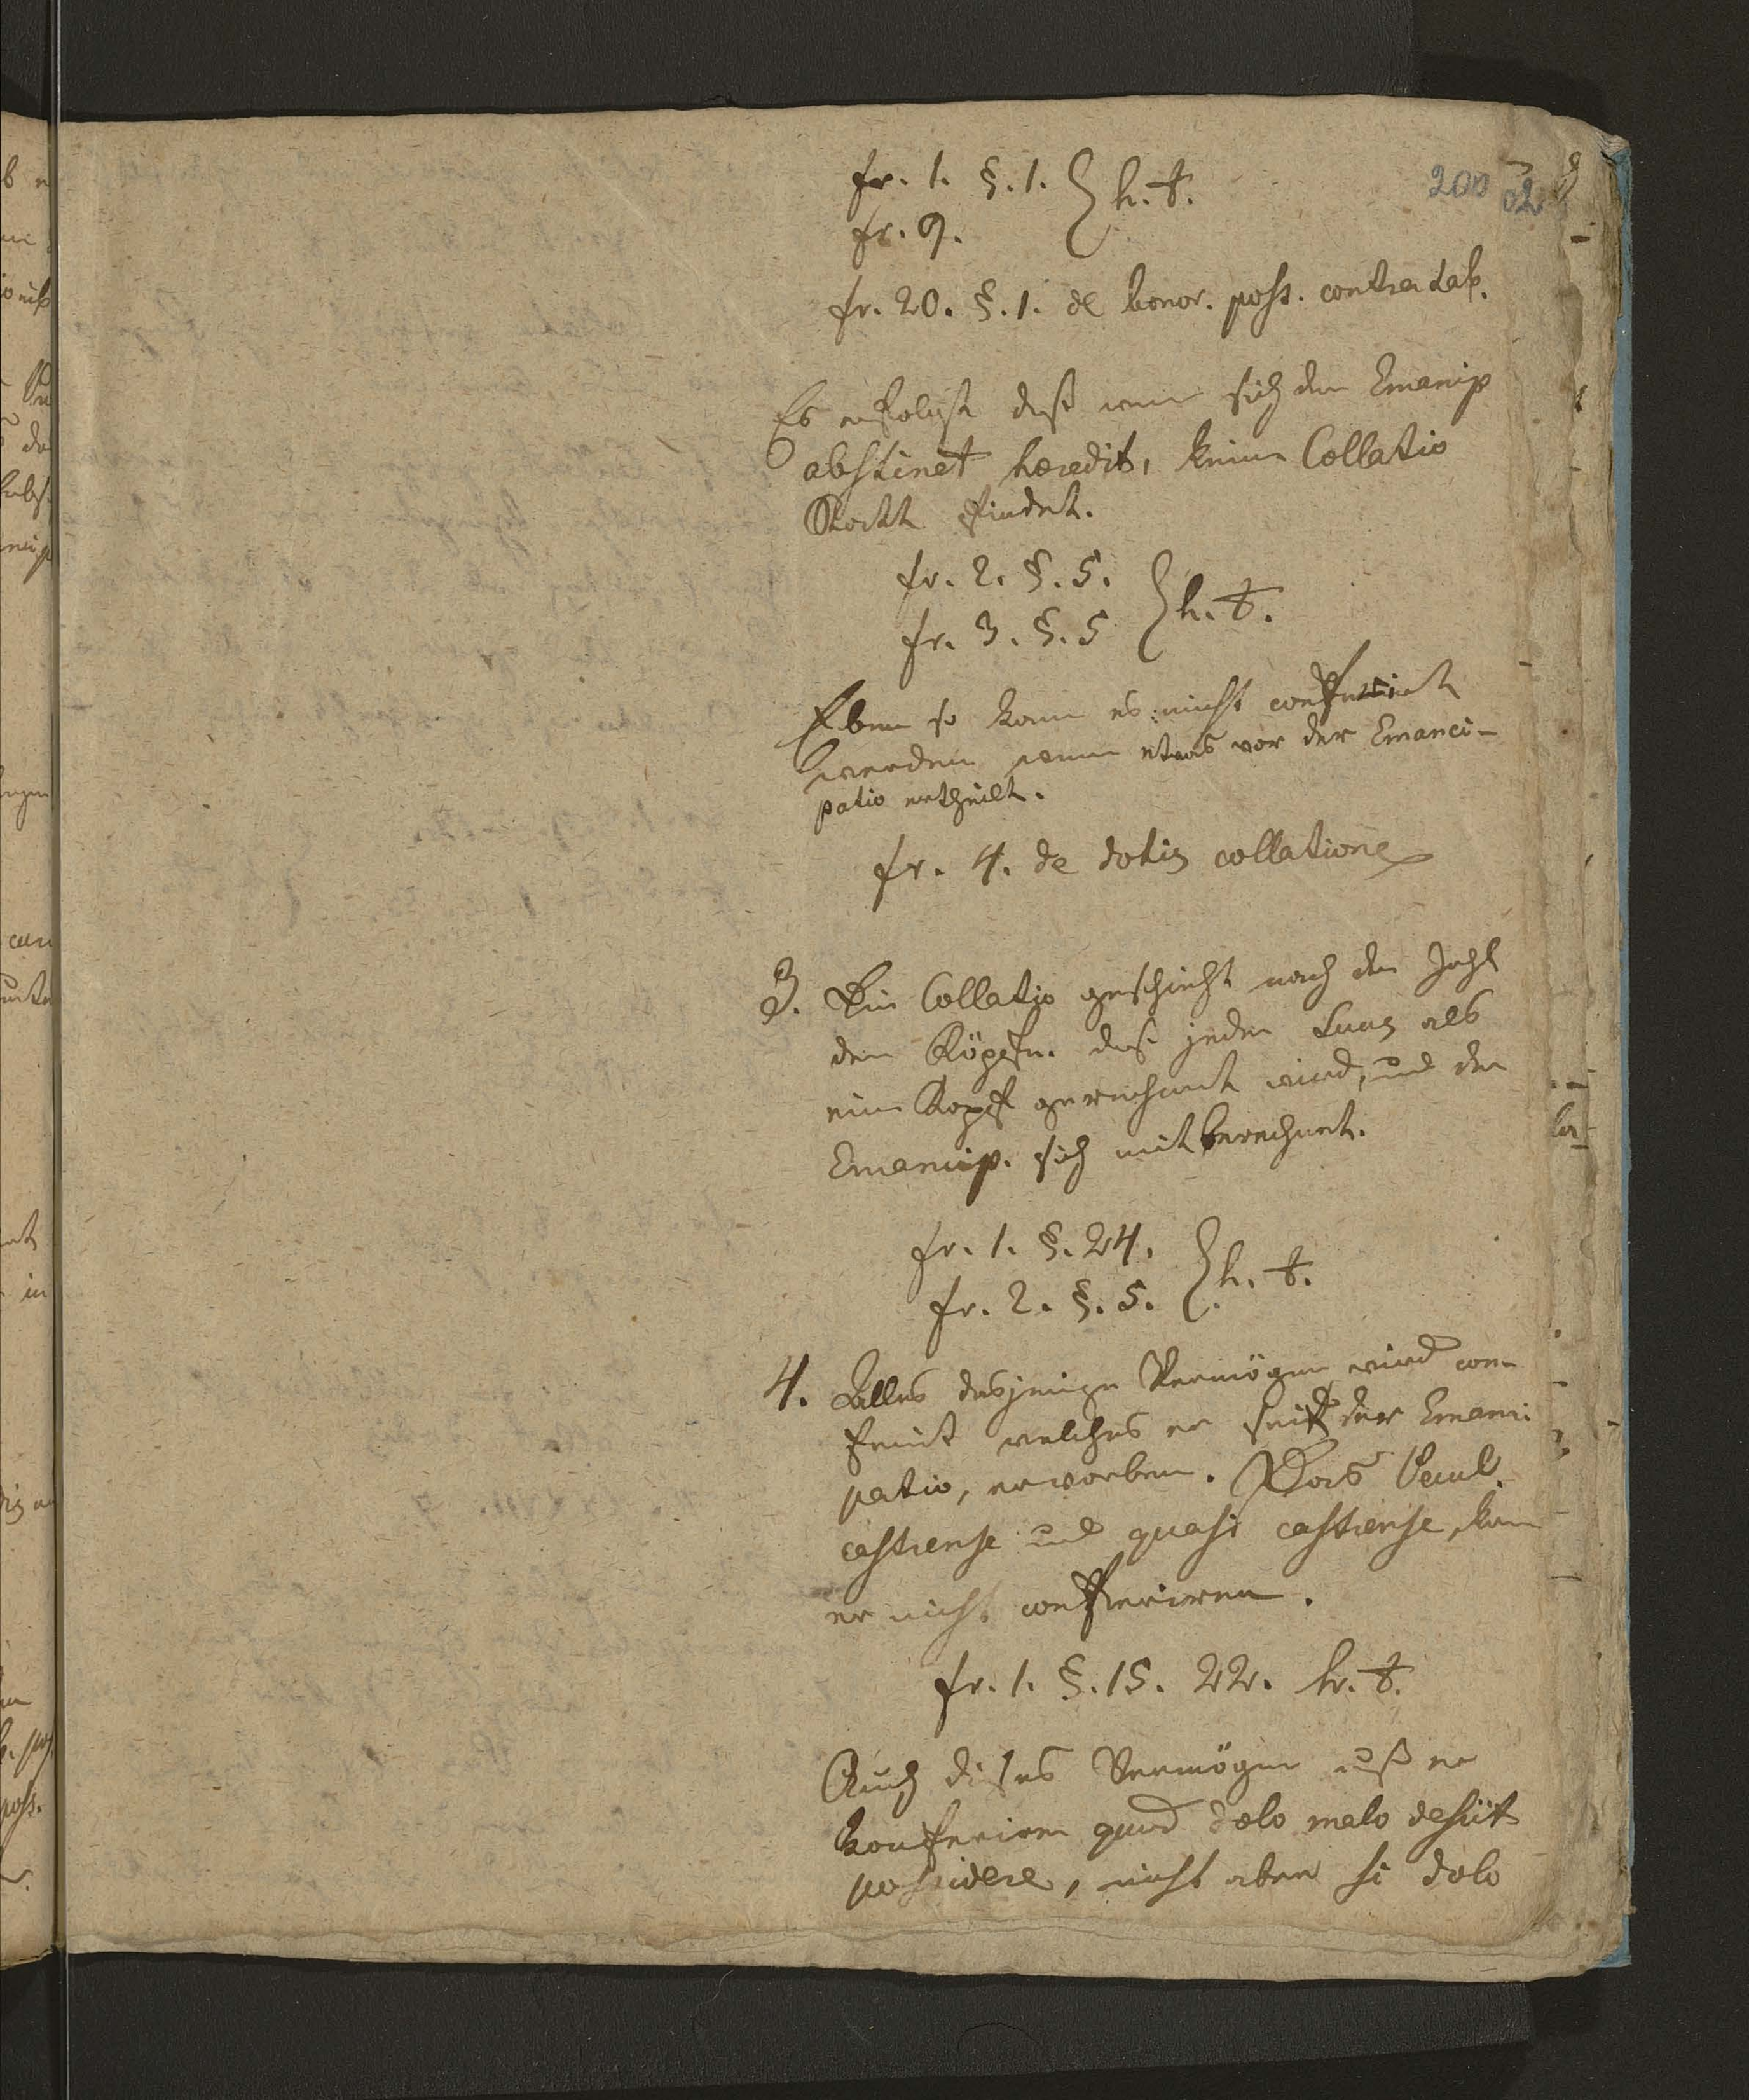 200 02
fr. 1. §. 1. } h. t.
fr. 9.
fr. 20. §. 1. de bonor. poss. contra tab.
Es erfolgt daß wenn sich der Emancip
abstinet heredit, keine Collatio
Statt findet.
fr. 2. §. 5. } h. t.
fr. 3. §. 5
Eben so kann es nicht conferirt
werden wenn etwas vor der Emanci-
patio ertheilt.
fr. 4. de dotis collatione
3. Die Collatio geschieht nach der Zahl
der Köpfe. daß jeder Suus als
ein Kopf gerechnet wird, und der
Emancip. sich mitberechnet.
fr. 1. §. 24. } h. t.
fr. 2. §. 5.
4. Alles dasjenige Vermögen wird con-
ferirt welches er seit der Emanci
patio, erworben. Das Pecul.
castrense und quasi castrense, kann
er nicht conferiren.
fr. 1. §. 15. 22. h. t.
Auch dieses Vermögen muß er
konferiren quod dolo malo desiit
possidere, nicht aber si dolo